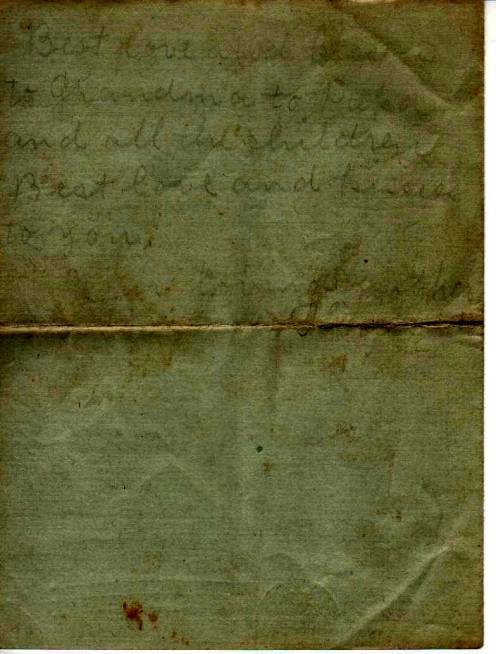 Best love and kisses
to Grandma to Papa
and all the children
Best love and kisses
to you.